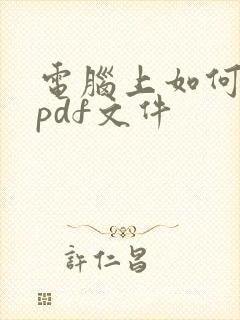 電腦上如何
pdf文件
許仁昌